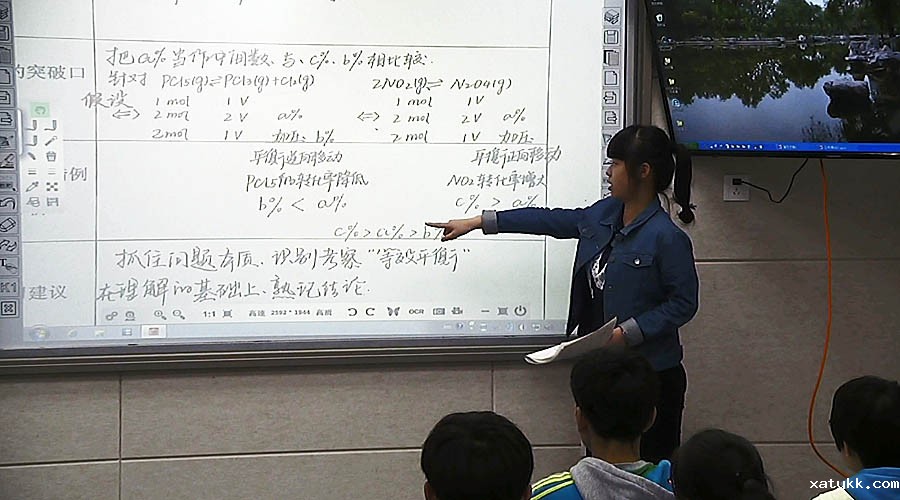 把a%当作中间数、与、c%、b%相比较.
的突破口
针对 PCl5(g)⇌PCl3(g)+Cl2(g) 2NO2(g)⇌N2O4(g)
假设 1 mol 1V 1 mol 1V
<=> 2 mol 2V a% <=> 2 mol 2V a%
2 mol 1V 加压: b% 2 mol 1V 加压:
平衡逆向移动 平衡正向移动
例
PCl5的转化率降低 NO2转化率增大
b% < a% c% > a%
c%>a%>b%
抓住问题本质、识别考察"等效平衡"
建议
在理解的基础上、熟记结论.
1:1 高速 2592 * 1944 高质 OCR
xatykk.com